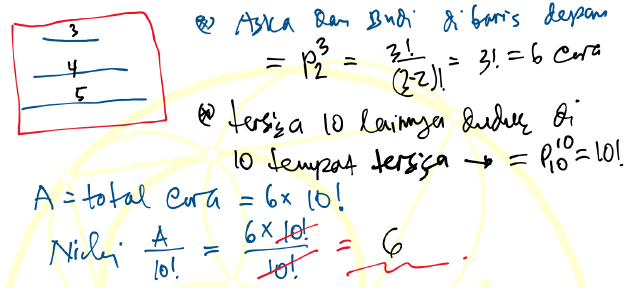 3
4
5
⊗ Aska dan Budi di baris depan
= P₂³ = 3!/(3-2)! = 3! = 6 cara
⊗ tersisa 10 lainnya duduk di
10 tempat tersisa → = P₁₀¹⁰ = 10!
A = total cara = 6 x 10!
Nilai A/10! = 6 x 10!/10! = 6